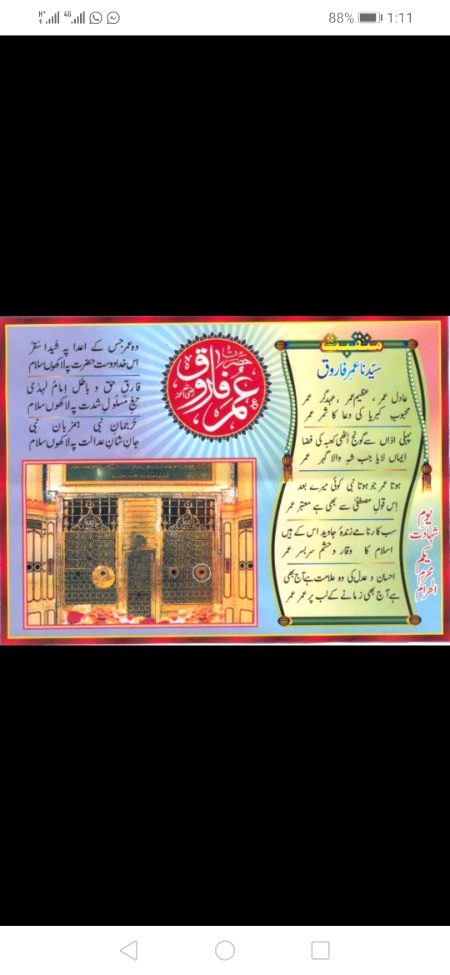 4G
88% 1:11
وہ عمر جس کے اعدا پہ شیدا سقر
اس خدا دوست حضرت پہ لاکھوں سلام
فارقِ حق و باطل امامُ الہدیٰ
تیغِ مسلولِ شدت پہ لاکھوں سلام
ترجمانِ نبی ہمزبانِ نبی
جانِ شانِ عدالت پہ لاکھوں سلام
حضرت
عمر فاروق
منقبت
سیّدنا عمر فاروق
عادل عمر، عظیم عمر، عہد گر عمر
محبوب کبریا کی دعا کا ثمر عمر
پہلی اذاں سے گونج اُٹھی کعبہ کی فضا
ایماں لایا جب شہِ والا گہر عمر
ہوتا عمر جو ہوتا نبی کوئی میرے بعد
اِس قولِ مصطفیٰ سے بھی ہے معتبر عمر
سب کارنامے زندۂ جاوید اس کے ہیں
اسلام کا وقار و حشم سربسر عمر
احسان و عدل کی وہ علامت ہے آج بھی
ہے آج بھی زمانے کے لب پر عمر عمر
یومِ
شہادت
یکم
محرم
الحرام